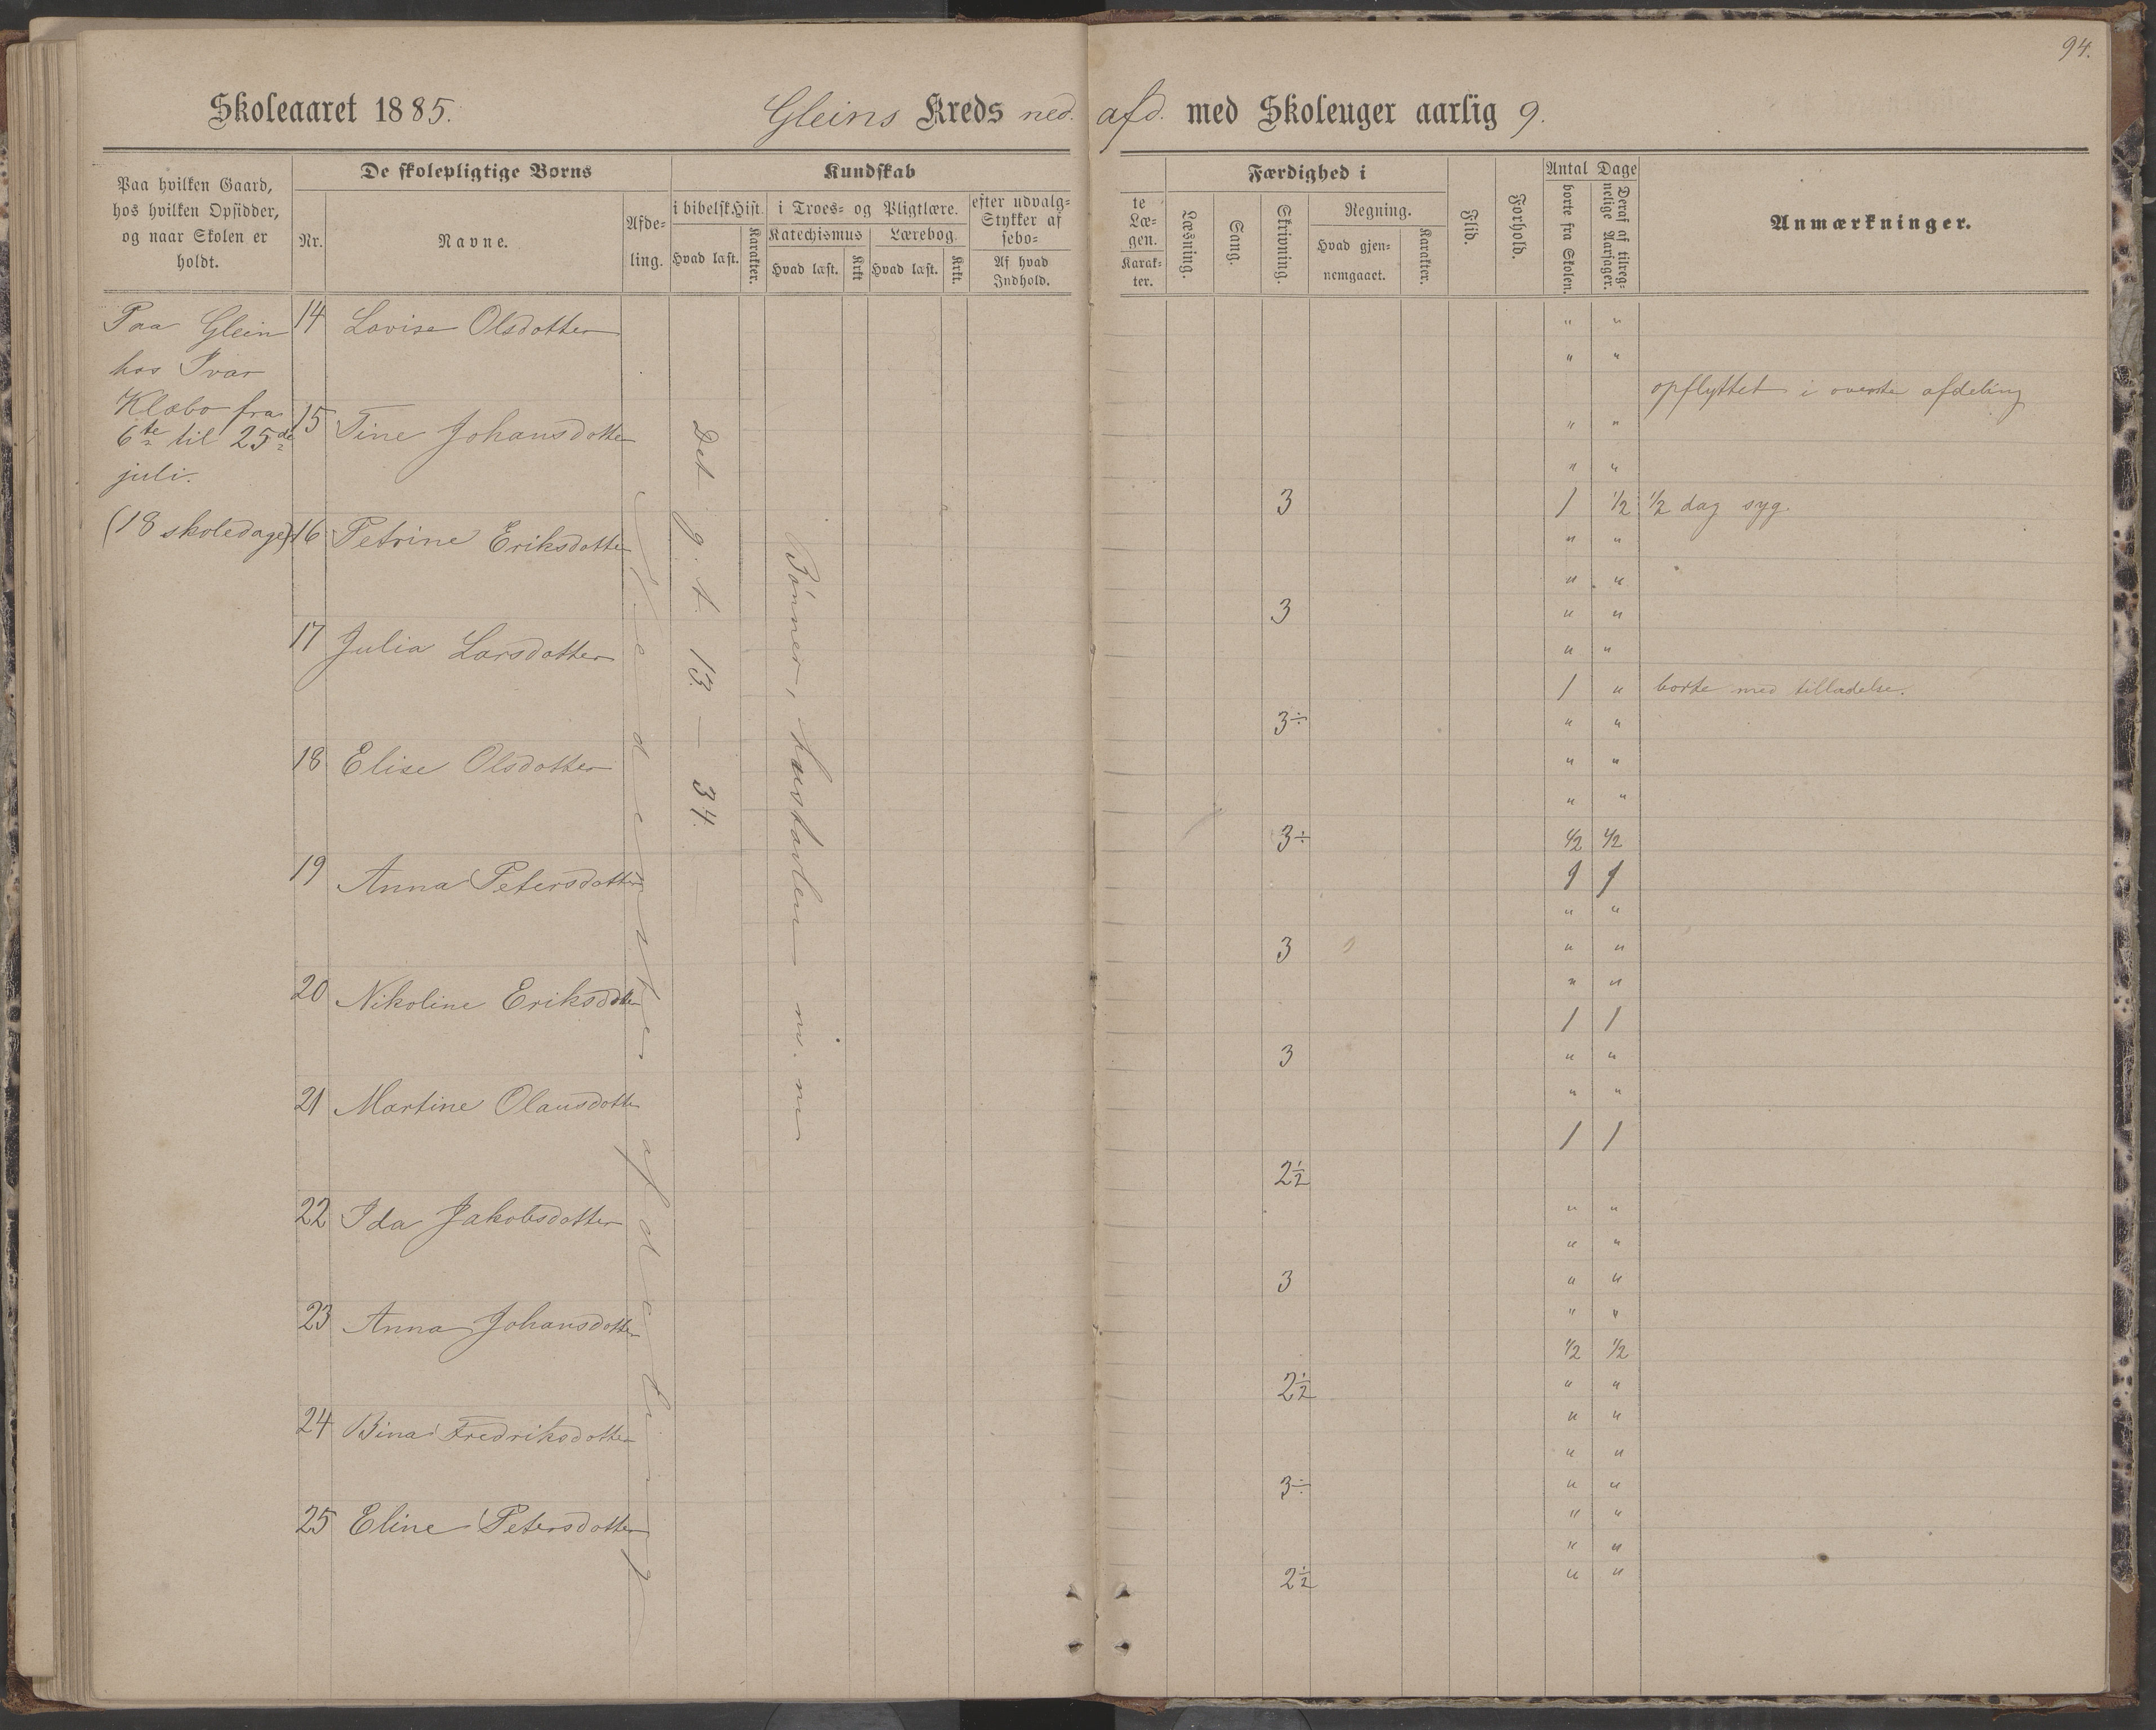 94.
Skoleaaret 1885. Gleins Kreds ned. afd. med Skoleuger aarlig 9.
Paa hvilken Gaard,
hos hvilken Opsidder,
og naar Skolen er
holdt.
De skolepligtige Børns
Nr.
Navne.
Afde-
ling.
Kundskab
i bibelsk Hist.
Hvad læst.
Karakter.
i Troes- og Pligtlære.
Katechismus
Hvad læst.
Krkt
Lærebog.
Hvad læst.
Krkt.
efter udvalg-
Stykker af
sebo-
Af hvad
Indhold.
te
Læ-
gen.
Karak-
ter.
Færdighed i
Læsning.
Sang.
Skrivning.
Regning.
Hvad gjen-
nemgaaet.
Karakter.
Flid.
Forhold.
Antal Dage
borte fra Skolen.
Deraf af tilreg-
nelige Aarsager.
Anmærkninger.
Paa Glein
hos Ivar
Klæbo fra
6te til 25de
juli.
(18 skoledage)
14 Lovise Olsdotter
" "
" "
opflyttet i øverste afdeling
15 Tine Johansdotter
" "
" "
3 1 1/2 1/2 dag syg.
16 Petrine Eriksdotter
" "
" "
3 " "
17 Julia Larsdotter
" "
1 " borte med tilladelse.
3÷ " "
18 Elise Olsdotter
" "
" "
3÷ 1/2 1/2
19 Anna Petersdotter
1 1
" "
3 " "
20 Nikoline Eriksdotter
" "
1 1
3 " "
21 Martine Olausdotter
" "
1 1
2½
22 Ida Jakobsdotter
" "
" "
3 " "
23 Anna Johansdotter
" "
1/2 1/2
2½ " "
24 Bina Fredriksdotter
" "
" "
3÷ " "
25 Eline Petersdotter
" "
" "
2½ " "
Nederste afdeling
Det g. t. 13. — 34.
Bønner, hustavlen m. m